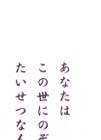 あなたは
この世にのぞ
たいせつな